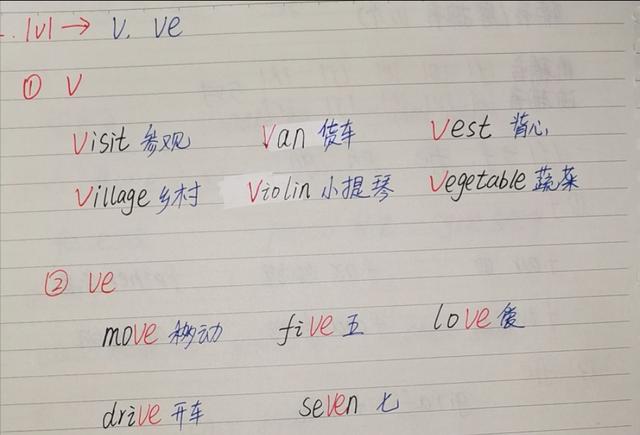 . /v/ → v. ve
① v
visit 参观 van 货车 vest 背心
village 乡村 violin 小提琴 vegetable 蔬菜
② ve
move 移动 five 五 love 爱
drive 开车 seven 七